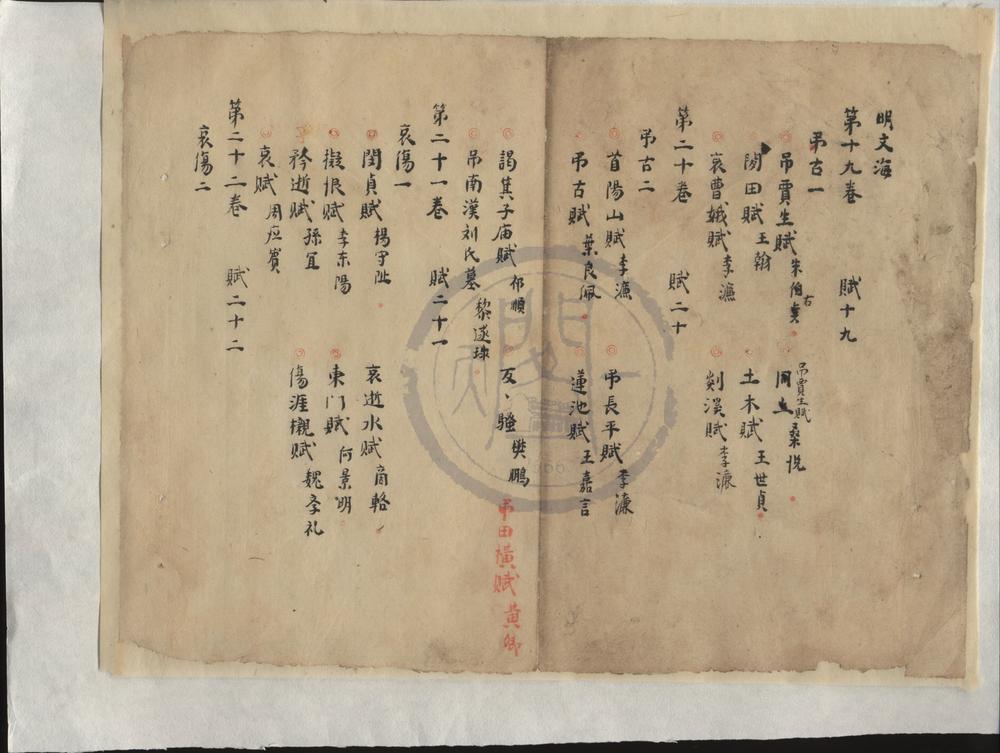 明文海
第十九卷 賦十九
弔古一
吊賈生賦 朱伯右 同上 桑悅
吊賈生賦
閔田賦 王翰 土木賦 王世貞
哀曹娥賦 李濂 剡溪賦 李濂
第二十卷 賦二十
弔古二
首陽山賦 李濂 弔長平賦 李濂
弔古賦 葉良佩 蓮池賦 王嘉言
謁箕子庙賦 祁順 反、騷 樊鵬
弔田橫賦 黃卿
吊南漢刘氏墓 黎遂球
第二十一卷 賦二十一
哀傷一
閔貞賦 楊守阯 哀逝水賦 商輅
擬恨賦 李东陽 東门賦 何景明
矜逝賦 孫宜 傷涯櫬賦 魏学礼
哀賦 周应賓
第二十二卷 賦二十二
哀傷二